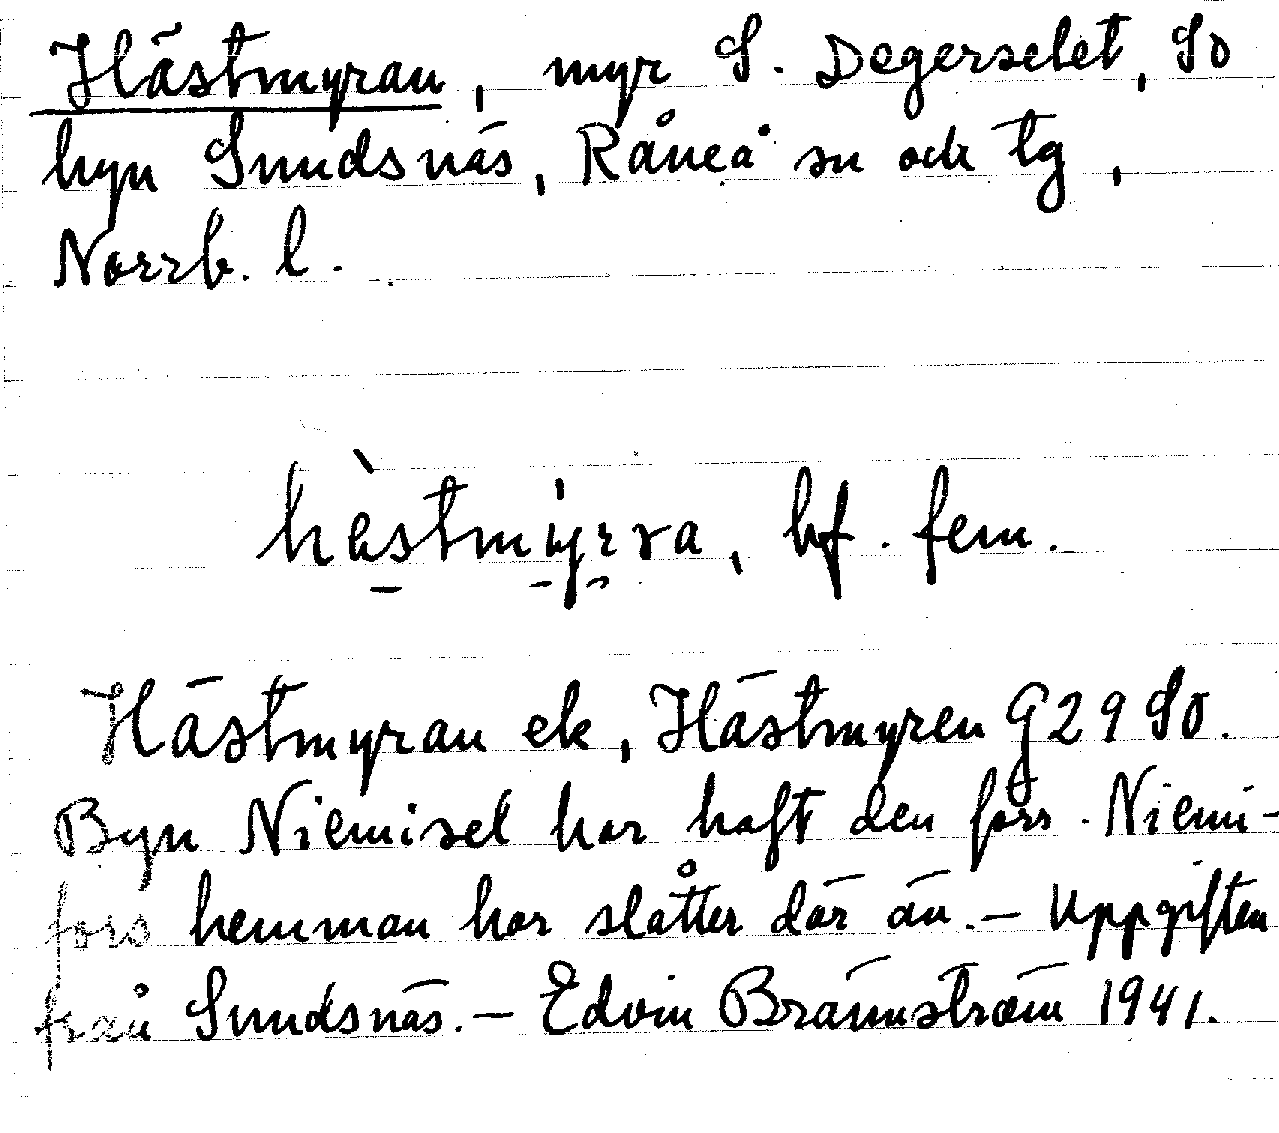 Hästmyran, myr S. Degerselet, SO
byn Sundsnäs, Råneå sn och tg,
Norrb. l.
hèstmyrra, bf. fem.
Hästmyran ek, Hästmyren G29 SO.
Byn Niemisel har haft den förr. Niemi-
fors hemman har slåtter där än. – Uppgiften
från Sundsnäs. – Edvin Brännström 1941.